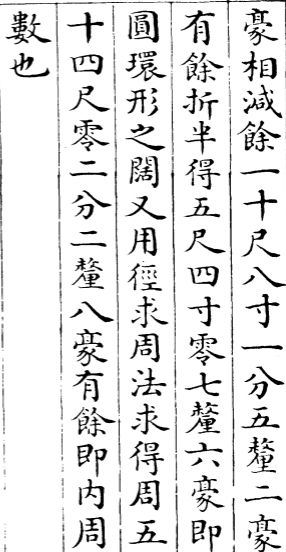 豪相減餘一十尺八寸一分五釐二豪
有餘折半得五尺四寸零七釐六豪即
圓環形之闊又用徑求周法求得周五
十四尺零二分二釐八豪有餘即内周
數也